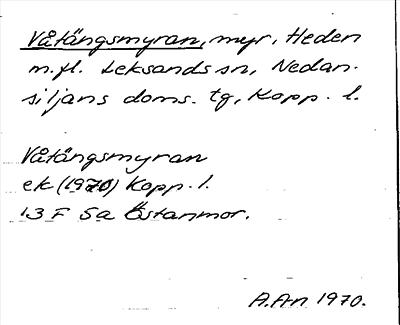 Våtängsmyran, myr, Heden
m.fl. Leksands sn, Nedan-
siljans doms. tg, Kopp. l.
Våtängsmyran
ek (1970) Kopp. l.
13 F 5a Östanmor.
A.An 1970.